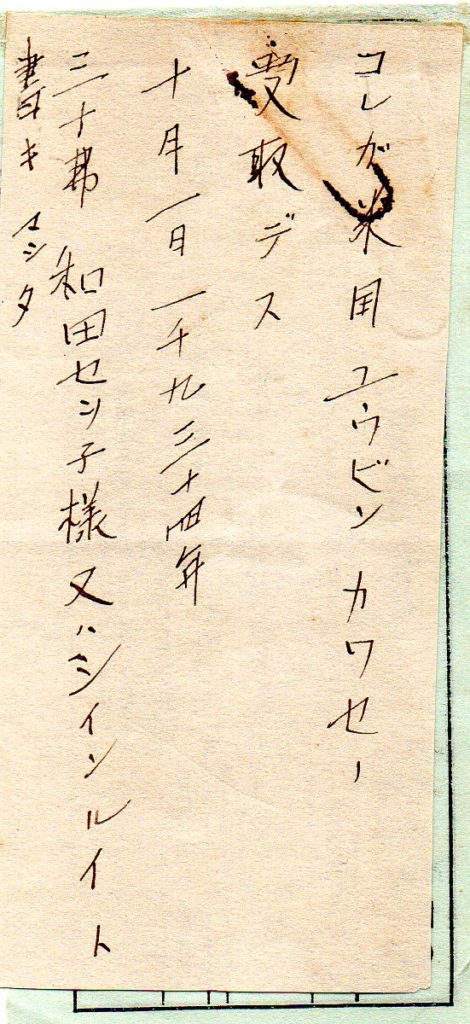 コレガ米国ユウビンカワセノ
受取デス
十月一日一千九三十四年
三十弗 和田セン子様又ハシインルイト
書キマシタ